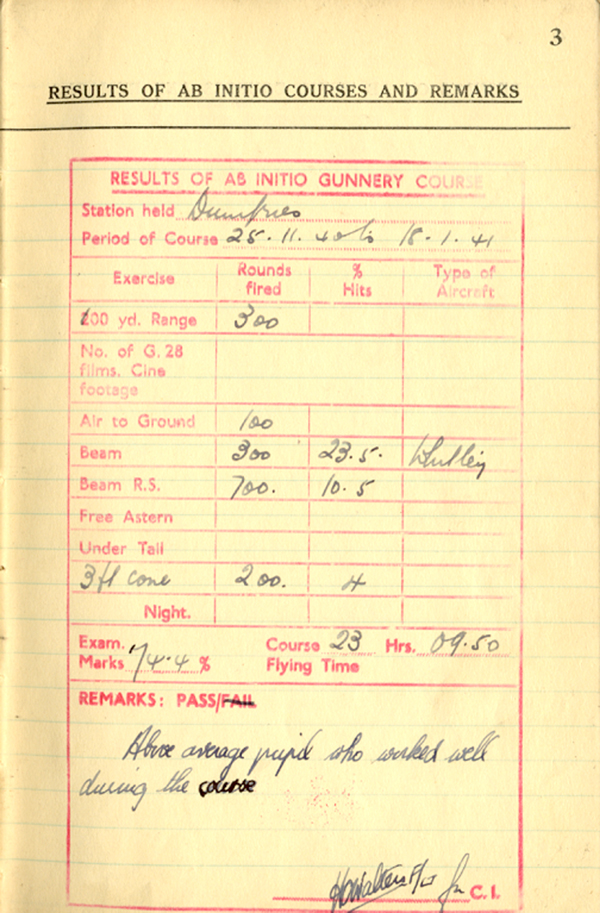 3
RESULTS OF AB INITIO COURSES AND REMARKS
RESULTS OF AB INITIO GUNNERY COURSE
Station held Dumfries
Period of Course 25.11.40 to 18.1.41
Exercise Rounds fired % Hits Type of Aircraft
200 yd. Range 300
No. of G.28 films. Cine footage
Air to Ground 100
Beam 300 23.5. Whitley
Beam R.S. 700. 10.5
Free Astern
Under Tail
3ft cone 200. 4
Night.
Exam. Marks 74.4 % Course 23 Hrs. 09.50
Flying Time
REMARKS: PASS/FAIL
Above average pupil who worked well
during the course
Walters F/Lt for C.I.